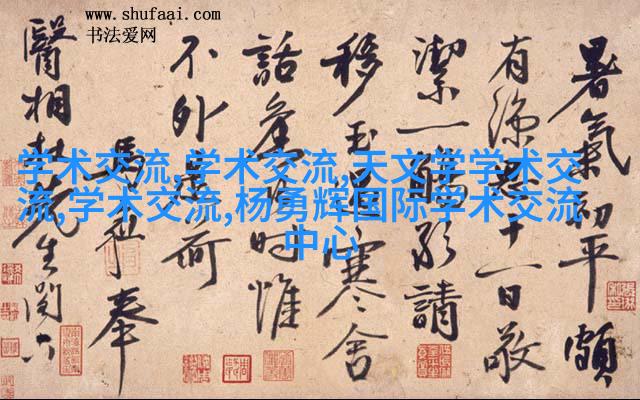 www.shufaai.com
书法爱网
学术交流,学术交流,天文学学术交
流,学术交流,杨勇辉国际学术交流
中心
暑氣初平頗
有涼意十一日敬
潔一觴請
移玉寒舍
話舊時惟
不外是荷
奉
醫相杜先生閣下